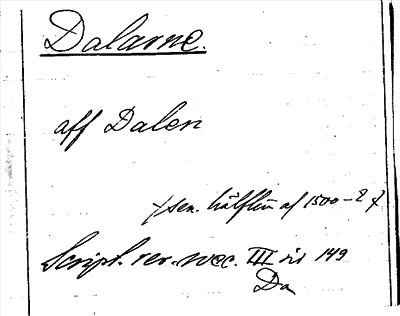 Dalarne.
aff Dalen
sen. hälften af 1500-
Script. rer. svec. III sid 149
Da